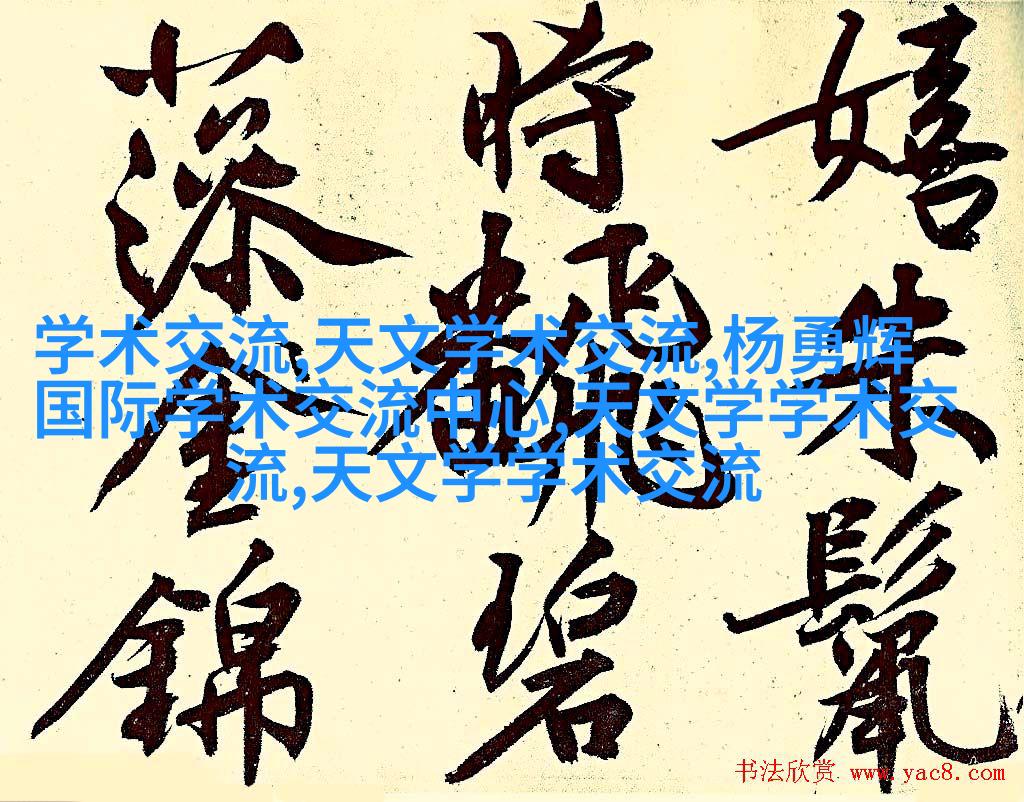 嬉朱鬣
時飜碧
錦
学术交流,天文学术交流,杨勇辉
国际学术交流中心,天文学学术交
流,天文学学术交流
书法欣赏 www.yac8.com